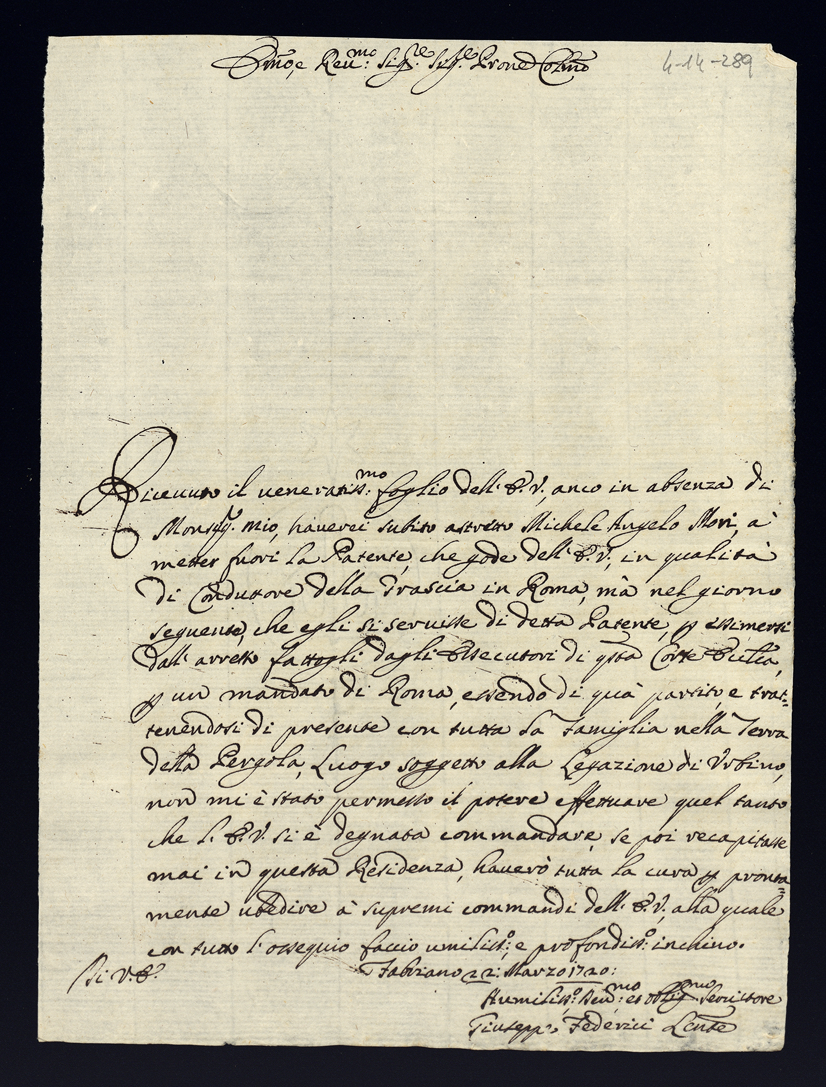 Emo, e Reu:mo Sig:re Sig:re Prone Colmo
4-14-289
Riceuuto il ueneratiss:mo foglio dell'E.V. anco in absenza di
Monsig:r mio, hauerei subito astretto Michele Angelo Mori, à
metter fuori la Patente, che gode dell'E.V, in qualità
di Condutore della Grascia in Roma, mà nel giorno
seguente, che egli si seruisse di detta Patente, p essimersi
dall'arresto fattogli dagli Essecutori di qsta Corte
p un mandato di Roma, essendo di quà partito, e trat=
tenendosi di presente con tutta sa famiglia nella Terra
della Pergola, Luogo soggetto alla Legazione di Vrbino,
non mi è stato permesso il potere effettuare quel tanto
che l'E.V. si è degnata commandare, se poi recapitasse
mai in questa Residenza, hauerò tutta la cura p pronta=
mente ubedire à supremi commandi dell'E.V, alla quale
con tutto l'ossequio faccio umiliss:o, e profondiss:o inchino.
Di V.E. Fabriano 22: Marzo 1720:
Humiliss:o Deu:mo et oblig:mo Seruitore
Giuseppe Federici